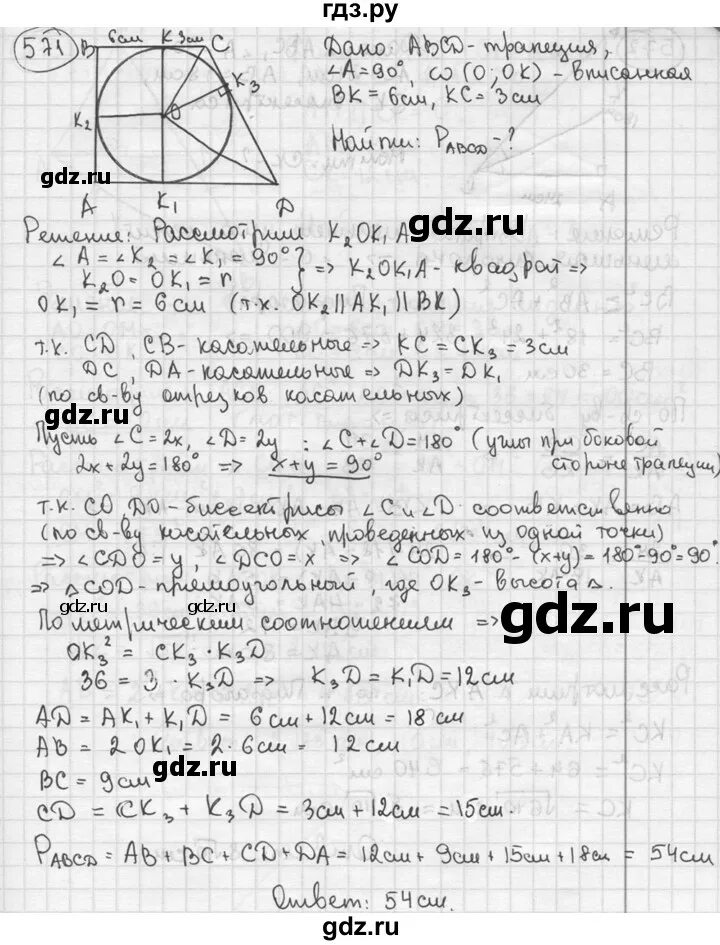 гдз.ру
571
B 6см K 3см C
Дано: ABCD-трапеция,
∠A=90°, ω(O;OK)-вписанная
BK=6см, KC=3см
Найти: P_ABCD-?
K3
K2
O
A K1 D
gdz.ru
gdz.ru
Решение: Рассмотрим K₂OK₁A
∠A=∠K₂=∠K₁=90°
K₂O=OK₁=r } => K₂OK₁A-квадрат =>
OK₁=r=6см (т.к. OK₂||AK₁||BK)
gdz.ru
т.к. CD, CB-касательные => KC=CK₃=3см
DC, DA-касательные => DK₃=DK₁
(по св-ву отрезков касательных)
gdz.ru
Пусть ∠C=2x, ∠D=2y : ∠C+∠D=180° (углы при боковой
2x+2y=180° => x+y=90° стороне трапеции)
т.к. CO, DO-биссектрисы ∠C и ∠D соответственно
(по св-ву касательных, проведенных из одной точки)
gdz.ru
=> ∠CDO=y, ∠DCO=x => ∠COD=180°-(x+y)=180°-90°=90°.
=> △COD-прямоугольный, где OK₃-высота △.
gdz.ru
gdz.ru
По метрическим соотношениям =>
OK₃²=CK₃·K₃D
36=3·K₃D => K₃D=K₁D=12см
gdz.ru
AD=AK₁+K₁D=6см+12см=18см
AB=2OK₁=2·6см=12см
gdz.ru
BC=9см
CD=CK₃+K₃D=3см+12см=15см.
gdz.ru
P_ABCD=AB+BC+CD+DA=12см+9см+15см+18см=54см
gdz.ru
Ответ: 54см.
gdz.ru